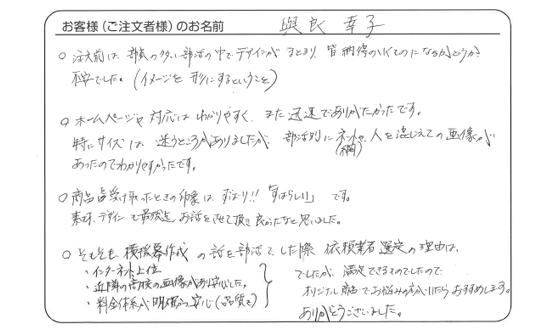 お客様（ご注文者様）のお名前
與良 幸子
○ 注文前は、部員の多い部活の中でデザインがまとまり、皆納得のいくものになるかどうか?
不安でした。（イメージを形にするということ）
○ ホームページや対応はわかりやすく、また迅速でありがたかったです。
特にサイズは迷うところがありましたが、部活別にネットや人を混じえての画像が
（横）
あったのでわかりやすかったです。
○ 商品を受け取ったときの印象はずばり!!「すばらしい」です。
素材、デザインで最後迄お話をさせて頂き良かったなと思いました。
○ そもそも横断幕作成の話を部活でした際、依頼業者選定の理由は、
・インターネット上位
・近隣の高校の画像があり安心した。
・料金体系が明確で安心（品質も）
でしたが、満足できるものでしたので
オリジナル商品でお悩みの方がいたらおすすめします。
ありがとうございました。